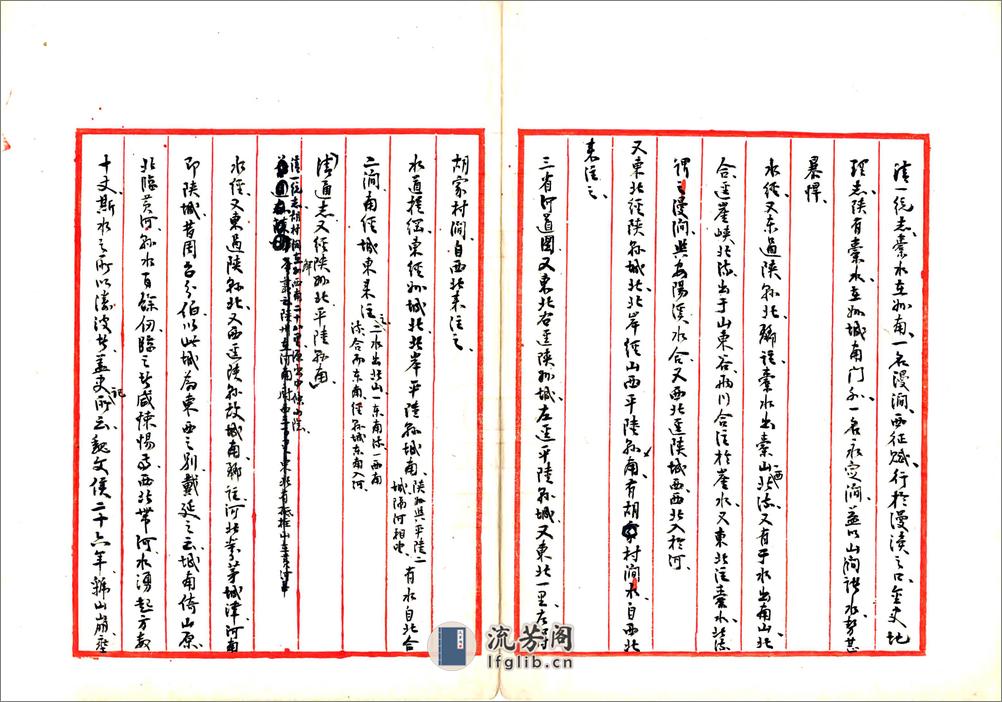 清一统志橐水在州南、一名漫涧、西征赋、行於漫渎之口、金史地
理志陕有橐水在州城南门外一名永定涧、盖以山涧诸水势甚
暴悍、
水经又东过陕县北、郦注橐水出橐山西北流、又有干水出南山、北
合逕崖峡北流出于山東谷两川合注於崖水又東北注橐水北流
谓之漫涧與安陽溪水合又西北逕陕城西西北入於河、
又東北经陕县城北北岸经山西平陸县南、有胡家村涧水自西北
来注之
三省河道图又東北右逕陕县城左逕平陸县城又東北一里左得
胡家村涧自西北来注之、
水道提纲東经州城北北岸平陸县城南、陕州與平陸二城隔河相望有水自北合
二涧南经城東来注之二水出北山一东南流一西南流合而东南经县城东南入河
清通志又经陕县北平陸县南
水经又東過陕县北又西逕陕县故城南郦注河北對茅城津河南
即陕城昔周召分伯以此城為東西之别戴延之云城南倚山原
北臨黄河县水百餘仞臨之者咸悚惕焉西北带河水湧起方数
十丈斯水之所以濤波者盖史记所云魏文侯二十六年虢山崩壅
流芳阁
lfglib.cn